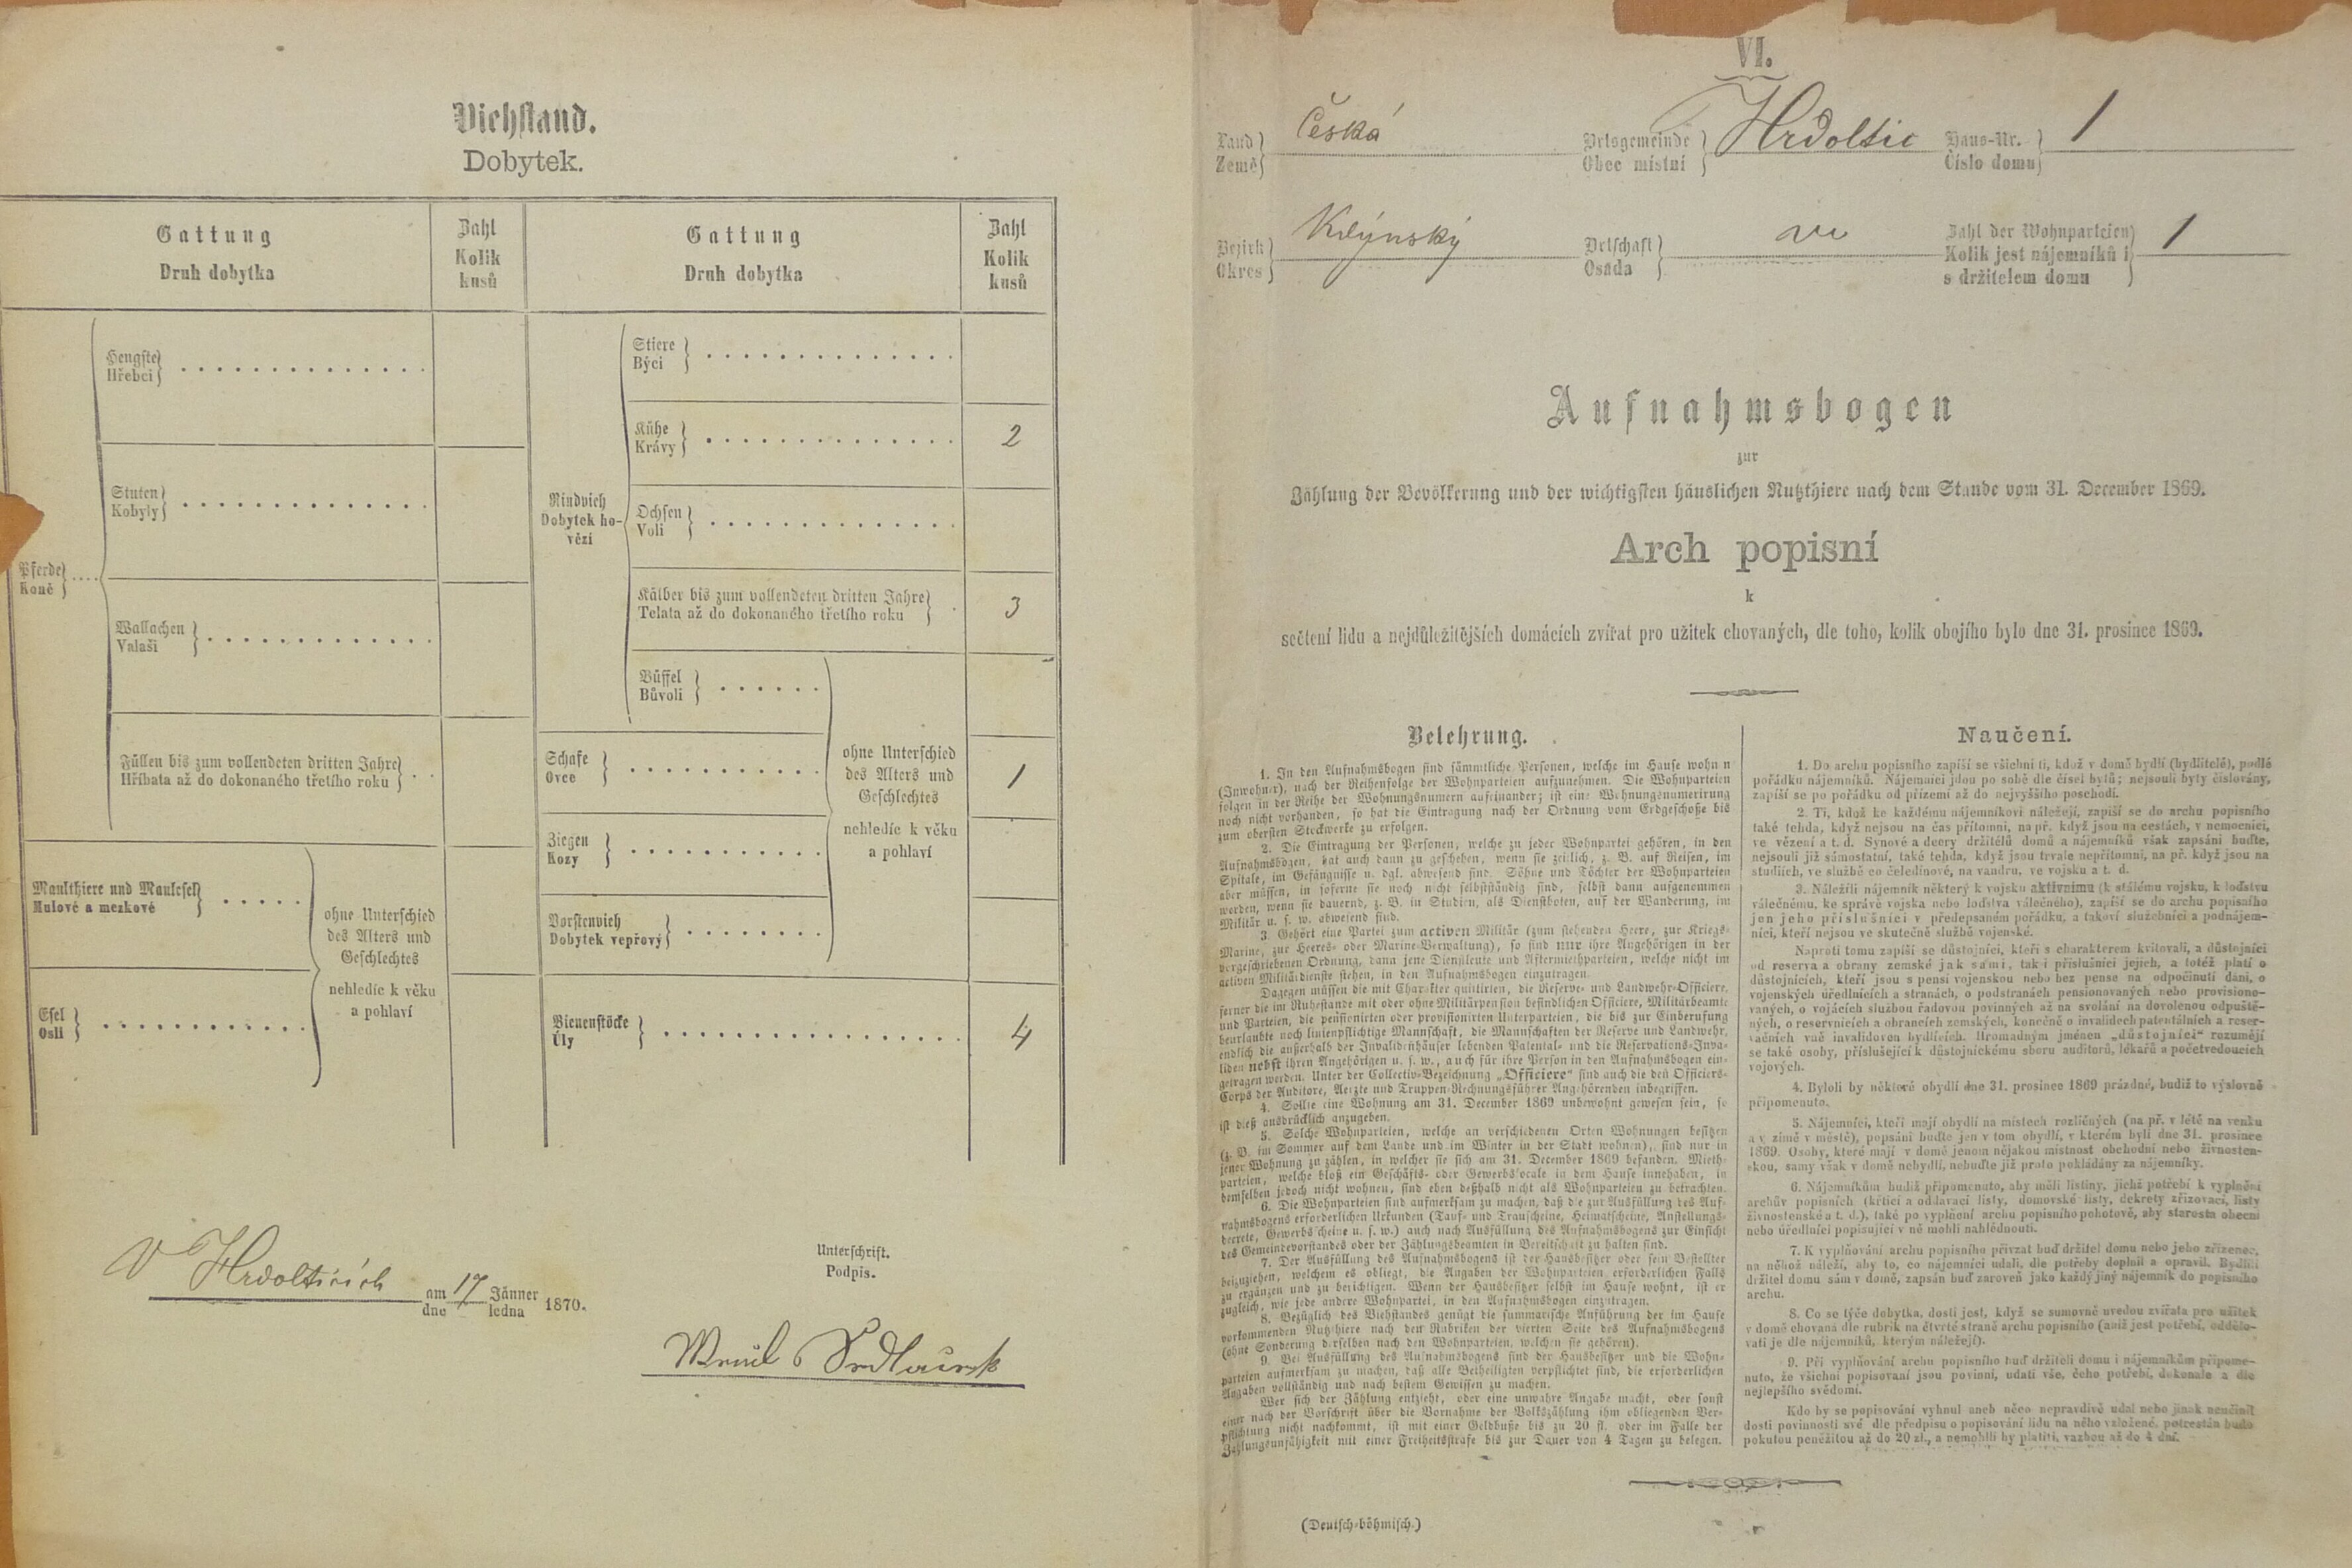 Viehstand.
Dobytek.
Gattung
Druh dobytka
Zahl
Kolik
kusů
Gattung
Druh dobytka
Zahl
Kolik
kusů
Pferde
Koně
Hengste
Hřebci
Stuten
Kobyly
Wallachen
Valaši
Füllen bis zum vollendeten dritten Jahre
Hříbata až do dokonaného třetího roku
Maulthiere und Maulesel
Mulové a mezkové
Esel
Osli
ohne Unterschied
des Alters und
Geschlechtes
nehledíc k věku
a pohlaví
Rindvieh
Dobytek ho-
vězí
Stiere
Býci
Kühe
Krávy
2
Ochsen
Voli
Kälber bis zum vollendeten dritten Jahre
Telata až do dokonaného třetího roku
3
Büffel
Bůvoli
Schafe
Ovce
1
Ziegen
Kozy
Borstenvieh
Dobytek vepřový
ohne Unterschied
des Alters und
Geschlechtes
nehledíc k věku
a pohlaví
Bienenstöcke
Úly
4
V Hrdolticích am 17 Jänner 1870.
dne ledna
Unterschrift.
Podpis.
VI.
Land
Země
Česká
Ortsgemeinde
Obec místní
Hrdoltic
Haus-Nr.
Číslo domu
1
Bezirk
Okres
Ortschaft
Osada
Zahl der Wohnparteien
Kolik jest nájemníků i
s držitelem domu
1
Aufnahmsbogen
zur
Zählung der Bevölkerung und der wichtigsten häuslichen Nutzthiere nach dem Stande vom 31. December 1869.
Arch popisní
k
sečtení lidu a nejdůležitějších domácích zvířat pro užitek chovaných, dle toho, kolik obojího bylo dne 31. prosince 1869.
Belehrung.
1. In den Aufnahmsbogen sind sämmtliche Personen, welche im Hause wohn n
(Inwohner), nach der Reihenfolge der Wohnparteien aufzunehmen. Die Wohnparteien
folgen in der Reihe der Wohnungsnumern aufeinander; ist eine Wohnungsnumerirung
noch nicht vorhanden, so hat die Eintragung nach der Ordnung vom Erdgeschoße bis
zum obersten Stockwerke zu erfolgen.
2. Die Eintragung der Personen, welche zu jeder Wohnpartei gehören, in den
Aufnahmsbogen, hat auch dann zu geschehen, wenn sie zeitlich, z. B. auf Reisen, im
Spitale, im Gefängnisse u. dgl. abwesend sind. Söhne und Töchter der Wohnparteien
aber müssen, in soferne sie noch nicht selbstständig sind, selbst dann aufgenommen
werden, wenn sie dauernd, z. B. in Studien, als Dienstboten, auf der Wanderung, im
Militär u. s. w. abwesend sind.
3. Gehört eine Partei zum activen Militär (zum stehenden Heere, zur Kriegs-
Marine, zur Heeres- oder Marine-Verwaltung), so sind nur ihre Angehörigen in der
vorgeschriebenen Ordnung, dann jene Dienstleute und Aftermiethparteien, welche nicht im
activen Militärdienste stehen, in den Aufnahmsbogen einzutragen.
Dagegen müssen die mit Charakter quittirten, die Reserve- und Landwehr-Officiere,
ferner die im Ruhestande mit oder ohne Militärpension befindlichen Officiere, Militärbeamte
und Parteien, die pensionirten oder provisionirten Unterparteien, die bis zur Einberufung
beurlaubte noch linienpflichtige Mannschaft, die Mannschaften der Reserve und Landwehr,
endlich die außerhalb der Invalidenhäuser lebenden Patental- und die Reservations-Inva-
liden nebst ihren Angehörigen u. s. w., auch für ihre Person in den Aufnahmsbogen ein-
getragen werden. Unter der Collectiv-Bezeichnung „Officiere“ sind auch die den Officiers-
Corps der Auditore, Aerzte und Truppen-Rechnungsführer Angehörenden inbegriffen.
4. Sollte eine Wohnung am 31. December 1869 unbewohnt gewesen sein, so
ist dieß ausdrücklich anzugeben.
5. Solche Wohnparteien, welche an verschiedenen Orten Wohnungen besitzen
(z. B. im Sommer auf dem Lande und im Winter in der Stadt wohnen), sind nur in
jener Wohnung zu zählen, in welcher sie sich am 31. December 1869 befanden. Mieth-
parteien, welche bloß ein Geschäfts- oder Gewerbslocale in dem Hause innehaben, in
demselben jedoch nicht wohnen, sind eben deßhalb nicht als Wohnparteien zu betrachten.
6. Die Wohnparteien sind aufmerksam zu machen, daß die zur Ausfüllung des Auf-
nahmsbogens erforderlichen Urkunden (Tauf- und Trauscheine, Heimatscheine, Anstellungs-
decrete, Gewerbsscheine u. s. w.) auch nach Ausfüllung des Aufnahmsbogens zur Einsicht
des Gemeindevorstandes oder der Zählungsbeamten in Bereitschaft zu halten sind.
7. Der Ausfüllung des Aufnahmsbogens ist der Hausbesitzer oder sein Bestellter
beizuziehen, welchem es obliegt, die Angaben der Wohnparteien erforderlichen Falls
zu ergänzen und zu berichtigen. Wenn der Hausbesitzer selbst im Hause wohnt, ist er
zugleich, wie jede andere Wohnpartei, in den Aufnahmsbogen einzutragen.
8. Bezüglich des Viehstandes genügt die summarische Anführung der im Hause
vorkommenden Nutzthiere nach den Rubriken der vierten Seite des Aufnahmsbogens
(ohne Sonderung derselben nach den Wohnparteien, welchen sie gehören).
9. Bei Ausfüllung des Aufnahmsbogens sind der Hausbesitzer und die Wohn-
parteien aufmerksam zu machen, daß alle Betheiligten verpflichtet sind, die erforderlichen
Angaben vollständig und nach bestem Gewissen zu machen.
Wer sich der Zählung entzieht, oder eine unwahre Angabe macht, oder sonst
einer nach der Vorschrift über die Vornahme der Volkszählung ihm obliegenden Ver-
pflichtung nicht nachkommt, ist mit einer Geldbuße bis zu 20 fl. oder im Falle der
Zahlungsunfähigkeit mit einer Freiheitsstrafe bis zur Dauer von 4 Tagen zu belegen.
Naučení.
1. Do archu popisního zapíší se všichni ti, kdož v domě bydlí (bydlitelé), podlé
pořádku nájemníků. Nájemníci jdou po sobě dle čísel bytů; nejsouli byty číslovány,
zapíší se po pořádku od přízemí až do nejvyššího poschodí.
2. Ti, kdož ke každému nájemníkovi náležejí, zapíší se do archu popisního
také tehda, když nejsou na čas přítomni, na př. když jsou na cestách, v nemocnici,
ve vězení a t. d. Synové a dcery držitelů domů a nájemníků však zapsáni buďte,
nejsouli již samostatní, také tehda, když jsou trvale nepřítomni, na př. když jsou na
studiích, ve službě co čeledínové, na vandru, ve vojsku a t. d.
3. Náležíli nájemník některý k vojsku aktivnímu (k stálému vojsku, k loďstvu
válečnému, ke správě vojska nebo loďstva válečného), zapíší se do archu popisního
jen jeho příslušníci v předepsaném pořádku, a takoví služebníci a podnájem-
níci, kteří nejsou ve skutečné službě vojenské.
Naproti tomu zapíší se důstojníci, kteří s charakterem kvitovali, a důstojníci
od reserva a obrany zemské jak sami, tak i příslušníci jejich, a totéž platí o
důstojnících, kteří jsou s pensí vojenskou nebo bez pense na odpočinutí dáni, o
vojenských úřednících a stranách, o podstranách pensionovaných nebo provisiono-
vaných, o vojácích službou řadovou povinných až na svolání na dovolenou odpuště-
ných, o reservnících a obrancích zemských, konečně o invalidech patentálních a reser-
vačních vně invalidoven bydlících. Hromadným jménem „důstojníci“ rozumějí
se také osoby, příslušející k důstojnickému sboru auditorů, lékařů a početvedoucích
vojových.
4. Byloli by některé obydlí dne 31. prosince 1869 prázdné, budiž to výslovně
připomenuto.
5. Nájemníci, kteří mají obydlí na místech rozličných (na př. v létě na venku
a v zimě v městě), popsáni buďte jen v tom obydlí, v kterém byli dne 31. prosince
1869. Osoby, které mají v domě jenom nějakou místnost obchodní nebo živnosten-
skou, samy však v domě nebydlí, nebuďte již proto pokládány za nájemníky.
6. Nájemníkům budiž připomenuto, aby měli listiny, jichž potřebí k vyplnění
archův popisních (křticí a oddavací listy, domovské listy, dekrety zřizovací, listy
živnostenské a t. d.), také po vyplnění archu popisního pohotově, aby starosta obecní
nebo úředníci popisující v ně mohli nahlédnouti.
7. K vyplňování archu popisního přivzat buď držitel domu nebo jeho zřízenec,
na něhož náleží, aby to, co nájemníci udali, dle potřeby doplnil a opravil. Bydlílí
držitel domu sám v domě, zapsán buď zároveň jako každý jiný nájemník do popisního
archu.
8. Co se týče dobytka, dosti jest, když se sumovně uvedou zvířata pro užitek
v domě chovaná dle rubrik na čtvrté straně archu popisního (aniž jest potřebí, oddělo-
vati je dle nájemníků, kterým náležejí).
9. Při vyplňování archu popisního buď držiteli domu i nájemníkům připome-
nuto, že všichni popisovaní jsou povinni, udati vše, čeho potřebí, dokonale a dle
nejlepšího svědomí.
Kdo by se popisování vyhnul aneb něco nepravdivě udal nebo jinak neučinil
dosti povinnosti své dle předpisu o popisování lidu na něho vzložené, potrestán bude
pokutou peněžitou až do 20 zl., a nemohlli by platiti, vazbou až do 4 dní.
(Deutsch-böhmisch.)